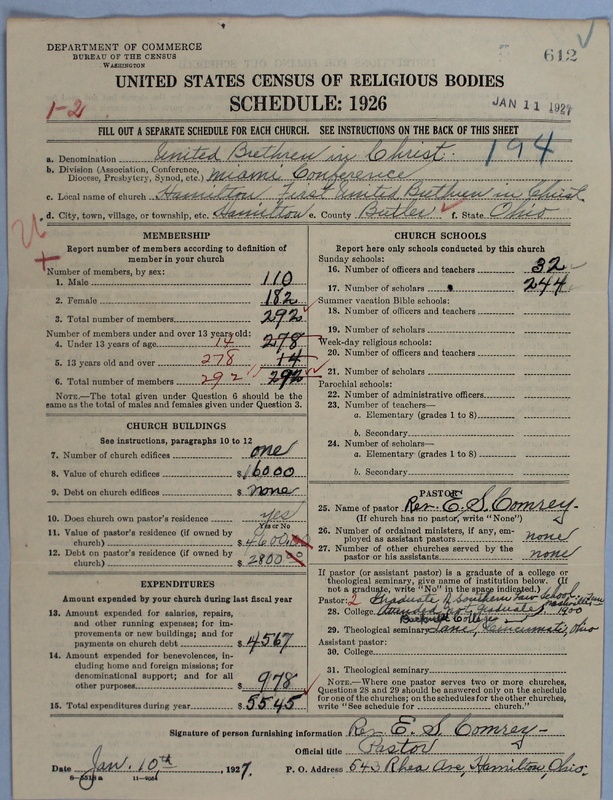 DEPARTMENT OF COMMERCE
BUREAU OF THE CENSUS
WASHINGTON
612
UNITED STATES CENSUS OF RELIGIOUS BODIES
SCHEDULE: 1926
1-2
JAN 11 1927
FILL OUT A SEPARATE SCHEDULE FOR EACH CHURCH. SEE INSTRUCTIONS ON THE BACK OF THIS SHEET
194
a. Denomination United Brethren in Christ.
b. Division (Association, Conference, Diocese, Presbytery, Synod, etc.) Miami Conference
c. Local name of church Hamilton First United Brethren in Christ
d. City, town, village, or township, etc. Hamilton e. County Butler f. State Ohio
MEMBERSHIP
Report number of members according to definition of
member in your church
Number of members, by sex:
1. Male 110
2. Female 182
3. Total number of members 292
Number of members under and over 13 years old:
4. Under 13 years of age 14 278
5. 13 years old and over 278 14
6. Total number of members 292 292
NOTE.—The total given under Question 6 should be
same as the total of males and females given under Question 3.
CHURCH BUILDINGS
See instructions, paragraphs 10 to 12
7. Number of church edifices one
8. Value of church edifices $16000
9. Debt on church edifices $none
10. Does church own pastor's residence yes
Yes or No
11. Value of pastor's residence (if owned by
church) $4600.00
12. Debt on pastor's residence (if owned by
church) $2800.00
EXPENDITURES
Amount expended by your church during last fiscal year
13. Amount expended for salaries, repairs,
and other running expenses; for im-
provements or new buildings; and for
payments on church debt $4567
14. Amount expended for benevolences, in-
cluding home and foreign missions; for
denominational support; and for all
other purposes $978
15. Total expenditures during year $5545
CHURCH SCHOOLS
Report here only schools conducted by this church
Sunday schools:
16. Number of officers and teachers 32
17. Number of scholars 244
Summer vacation Bible schools:
18. Number of officers and teachers
19. Number of scholars
Week-day religious schools:
20. Number of officers and teachers
21. Number of scholars
Parochial schools:
22. Number of administrative officers
23. Number of teachers—
a. Elementary (grades 1 to 8)
b. Secondary
24. Number of scholars—
a. Elementary (grades 1 to 8)
b. Secondary
PASTOR
25. Name of pastor Rev. E. S. Comrey
(If church has no pastor, write "None")
26. Number of ordained ministers, if any, em-
ployed as assistant pastors none
27. Number of other churches served by the
pastor or his assistants none
If pastor (or assistant pastor) is a graduate of a college or
theological seminary, give name of institution below. (If
not a graduate, write "No" in the space indicated)
Pastor: 2 Graduate of Southern Law School
28. College Attended not graduate 1900
29. Theological seminary Lane, Cincinnati, Ohio
Assistant pastor:
30. College
31. Theological seminary
NOTE.—Where one pastor serves two or more churches,
Questions 28 and 29 should be answered only on the schedule
for one of the churches; on the schedules for the other churches,
write "See schedule for church."
Signature of person furnishing information Rev. E. S. Comrey
Official title Pastor
Date Jan. 10th, 1927. P. O. Address 643 Rhea Ave, Hamilton, Ohio.
8—5518 a 11—9054